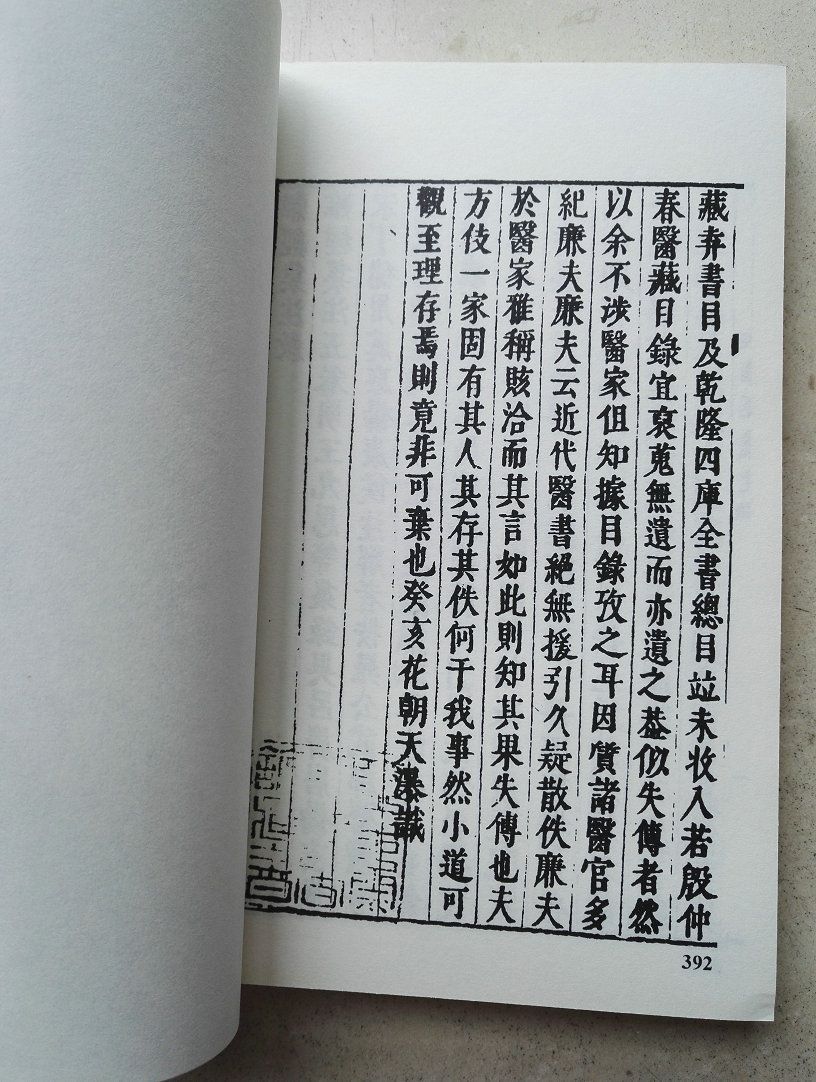 藏弆書目及乾隆四庫全書總目竝未收入若殷仲
春醫藏目錄宜裒蒐無遺而亦遺之葢似失傳者然
以余不涉醫家但知據目錄攷之耳因質諸醫官多
紀廉夫廉夫云近代醫書絕無援引久疑散佚廉夫
於醫家雅稱賅洽而其言如此則知其果失傳也夫
方伎一家固有其人其存其佚何干我事然小道可
觀至理存焉則竟非可棄也癸亥花朝天瀑識
392